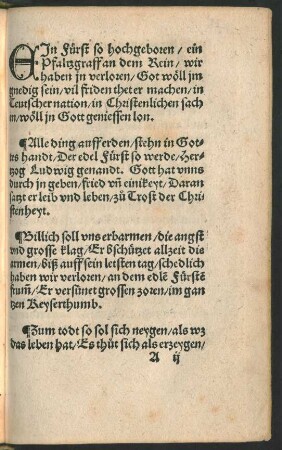 EIn Fürst so hochgeboren / ein
Pfaltzgraff an dem Rein / wir
haben jn verloren / Got wöll jm
gnedig sein / vil friden thet er machen / in
Teutscher nation / in Christenlichen sach
en / wöll jn Gott geniessen lon.
¶Alle ding auff erden / stehn in Got-
tes handt / Der edel Fürst so werde / Her-
tzog Ludwig genandt. Gott hat vnns
durch jn geben / frid vn̄ einikeyt / Daran
satzt er leib vnd leben / zů Trost der Chri
stenheyt.
¶Billich soll vns erbarmen / die angst
vnd grosse klag / Er bschützet allzeit die
armen / biß auff sein letsten tag / schedlich
haben wir verloren / an dem edlē Fürstē
frum̄ / Er versünet grossen zoren / im gan
tzen Keyserthumb.
¶Zum todt so sol sich neygen / als wz
das leben hat / Es thůt sich als erzeygen /
A ij